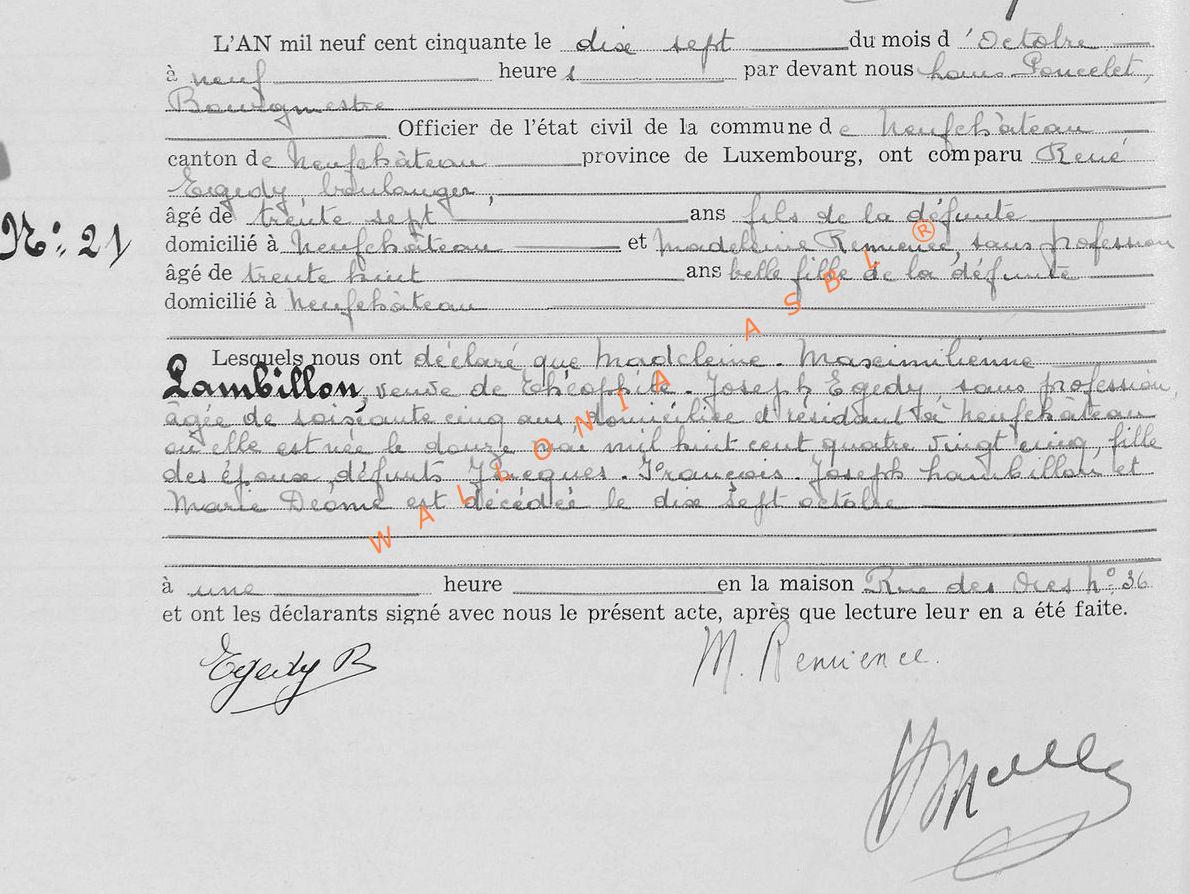 L'AN mil neuf cent cinquante le dix sept du mois d'Octobre
à neuf heure s par devant nous Louis Poncelet,
Bourgmestre
Officier de l'état civil de la commune de Neufchâteau
canton de Neufchâteau province de Luxembourg, ont comparu René
Egedy boulanger,
N° 21
âgé de trente sept ans fils de la défunte
domicilié à Neufchâteau et Madeleine Remience, sans profession
âgé de trente huit ans belle fille de la défunte
domicilié à Neufchâteau
Lesquels nous ont déclaré que Madeleine. Maximilienne
Lambillon, veuve de Théophile. Joseph Egedy, sans profession,
âgée de soixante cinq ans, domiciliée et résidant à Neufchâteau
où elle est née le douze mai mil huit cent quatre vingt cinq, fille
des époux défunts Jacques. François. Joseph Lambillon, et
Marie Déome est décédée le dix sept octobre
à une heure en la maison Rue des Oies n° 36
et ont les déclarants signé avec nous le présent acte, après que lecture leur en a été faite.
Egedy R M. Remience.
WALLONIA ASBL ®